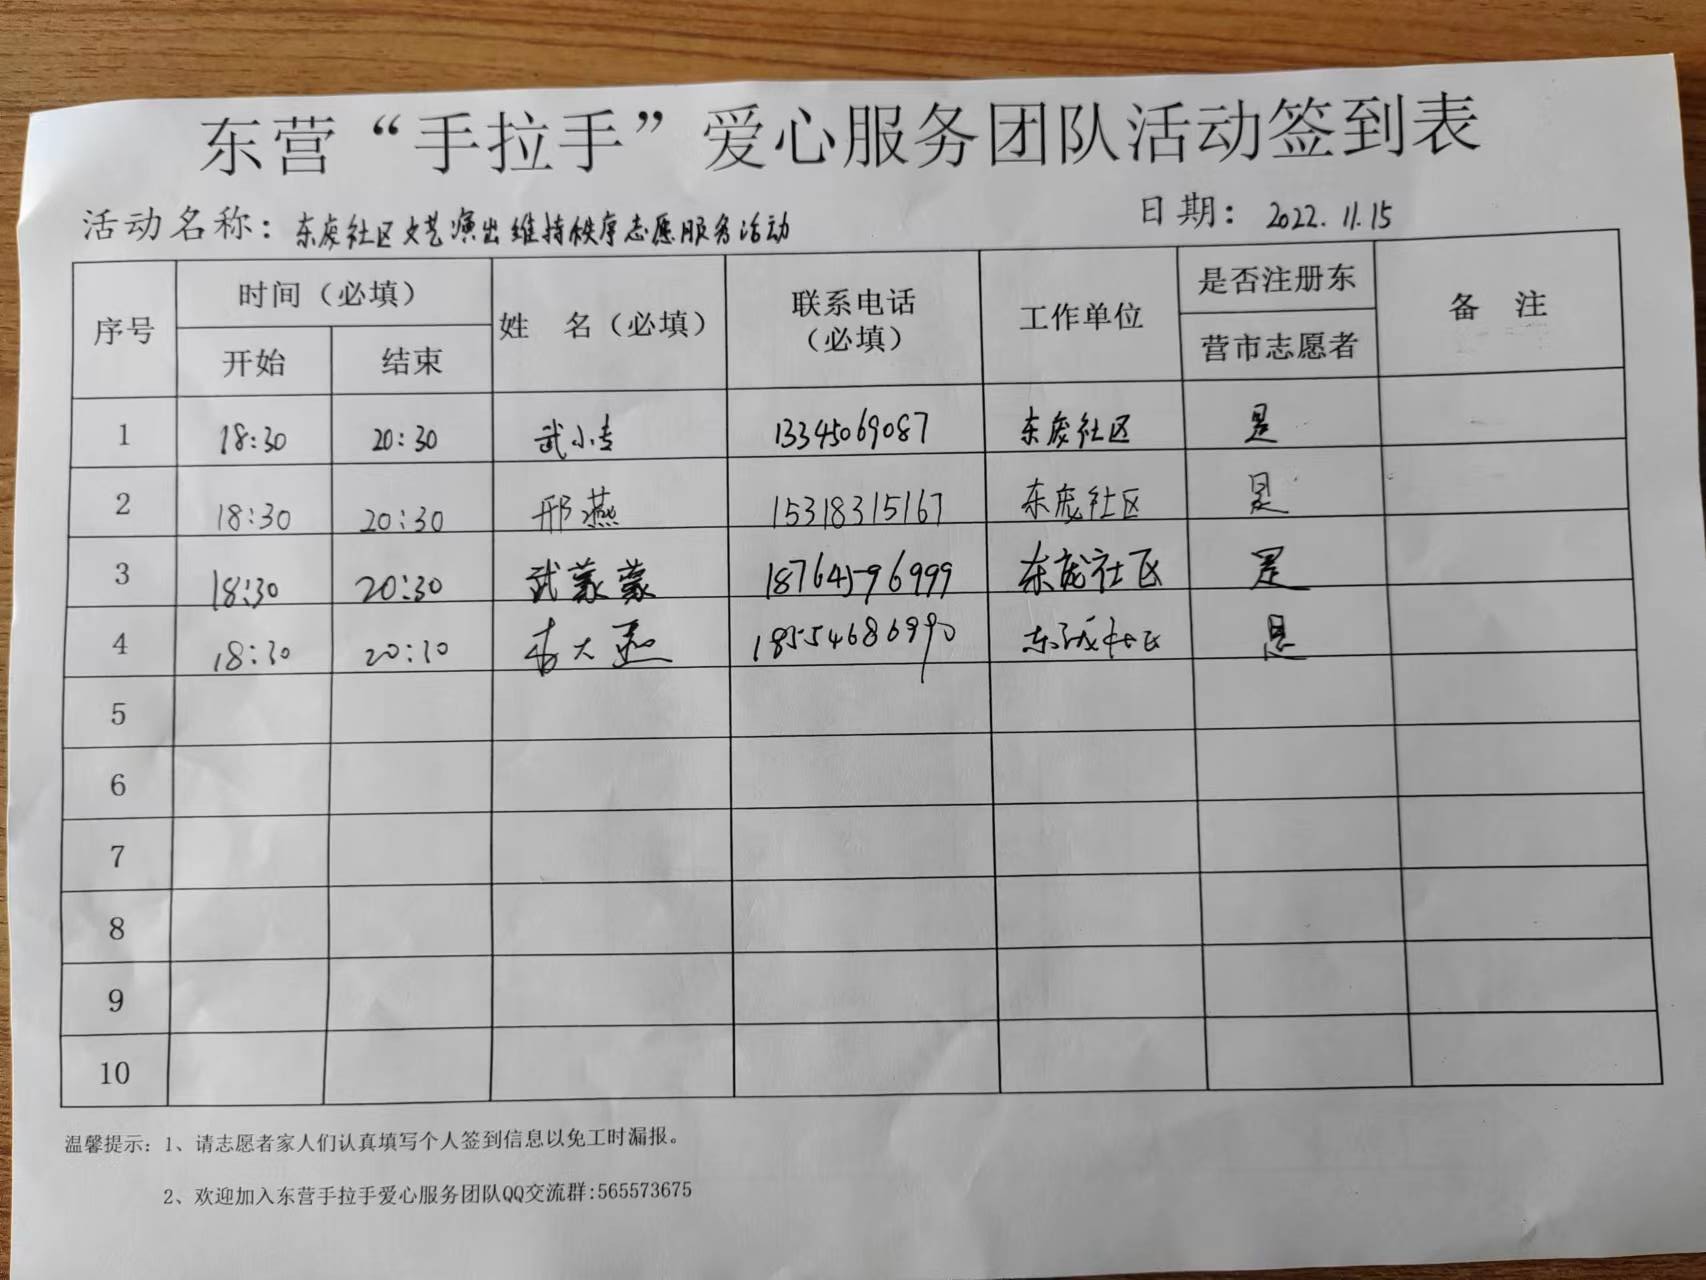 东营“手拉手”爱心服务团队活动签到表
活动名称：东庞社区文艺演出维持秩序志愿服务活动 日期：2022.11.15
序号 时间（必填） 姓 名（必填） 联系电话（必填） 工作单位 是否注册东营市志愿者 备 注
开始 结束
1 18:30 20:30 武小 13345069087 社区 是
2 18:30 20:30 邢燕 15318315167 社区 是
3 18:30 20:30 武蒙蒙 18764596999 社区 是
4 18:30 20:30 李大 18554686990 社区 是
5
6
7
8
9
10
温馨提示：1、请志愿者家人们认真填写个人签到信息以免工时漏报。
2、欢迎加入东营手拉手爱心服务团队QQ交流群:565573675